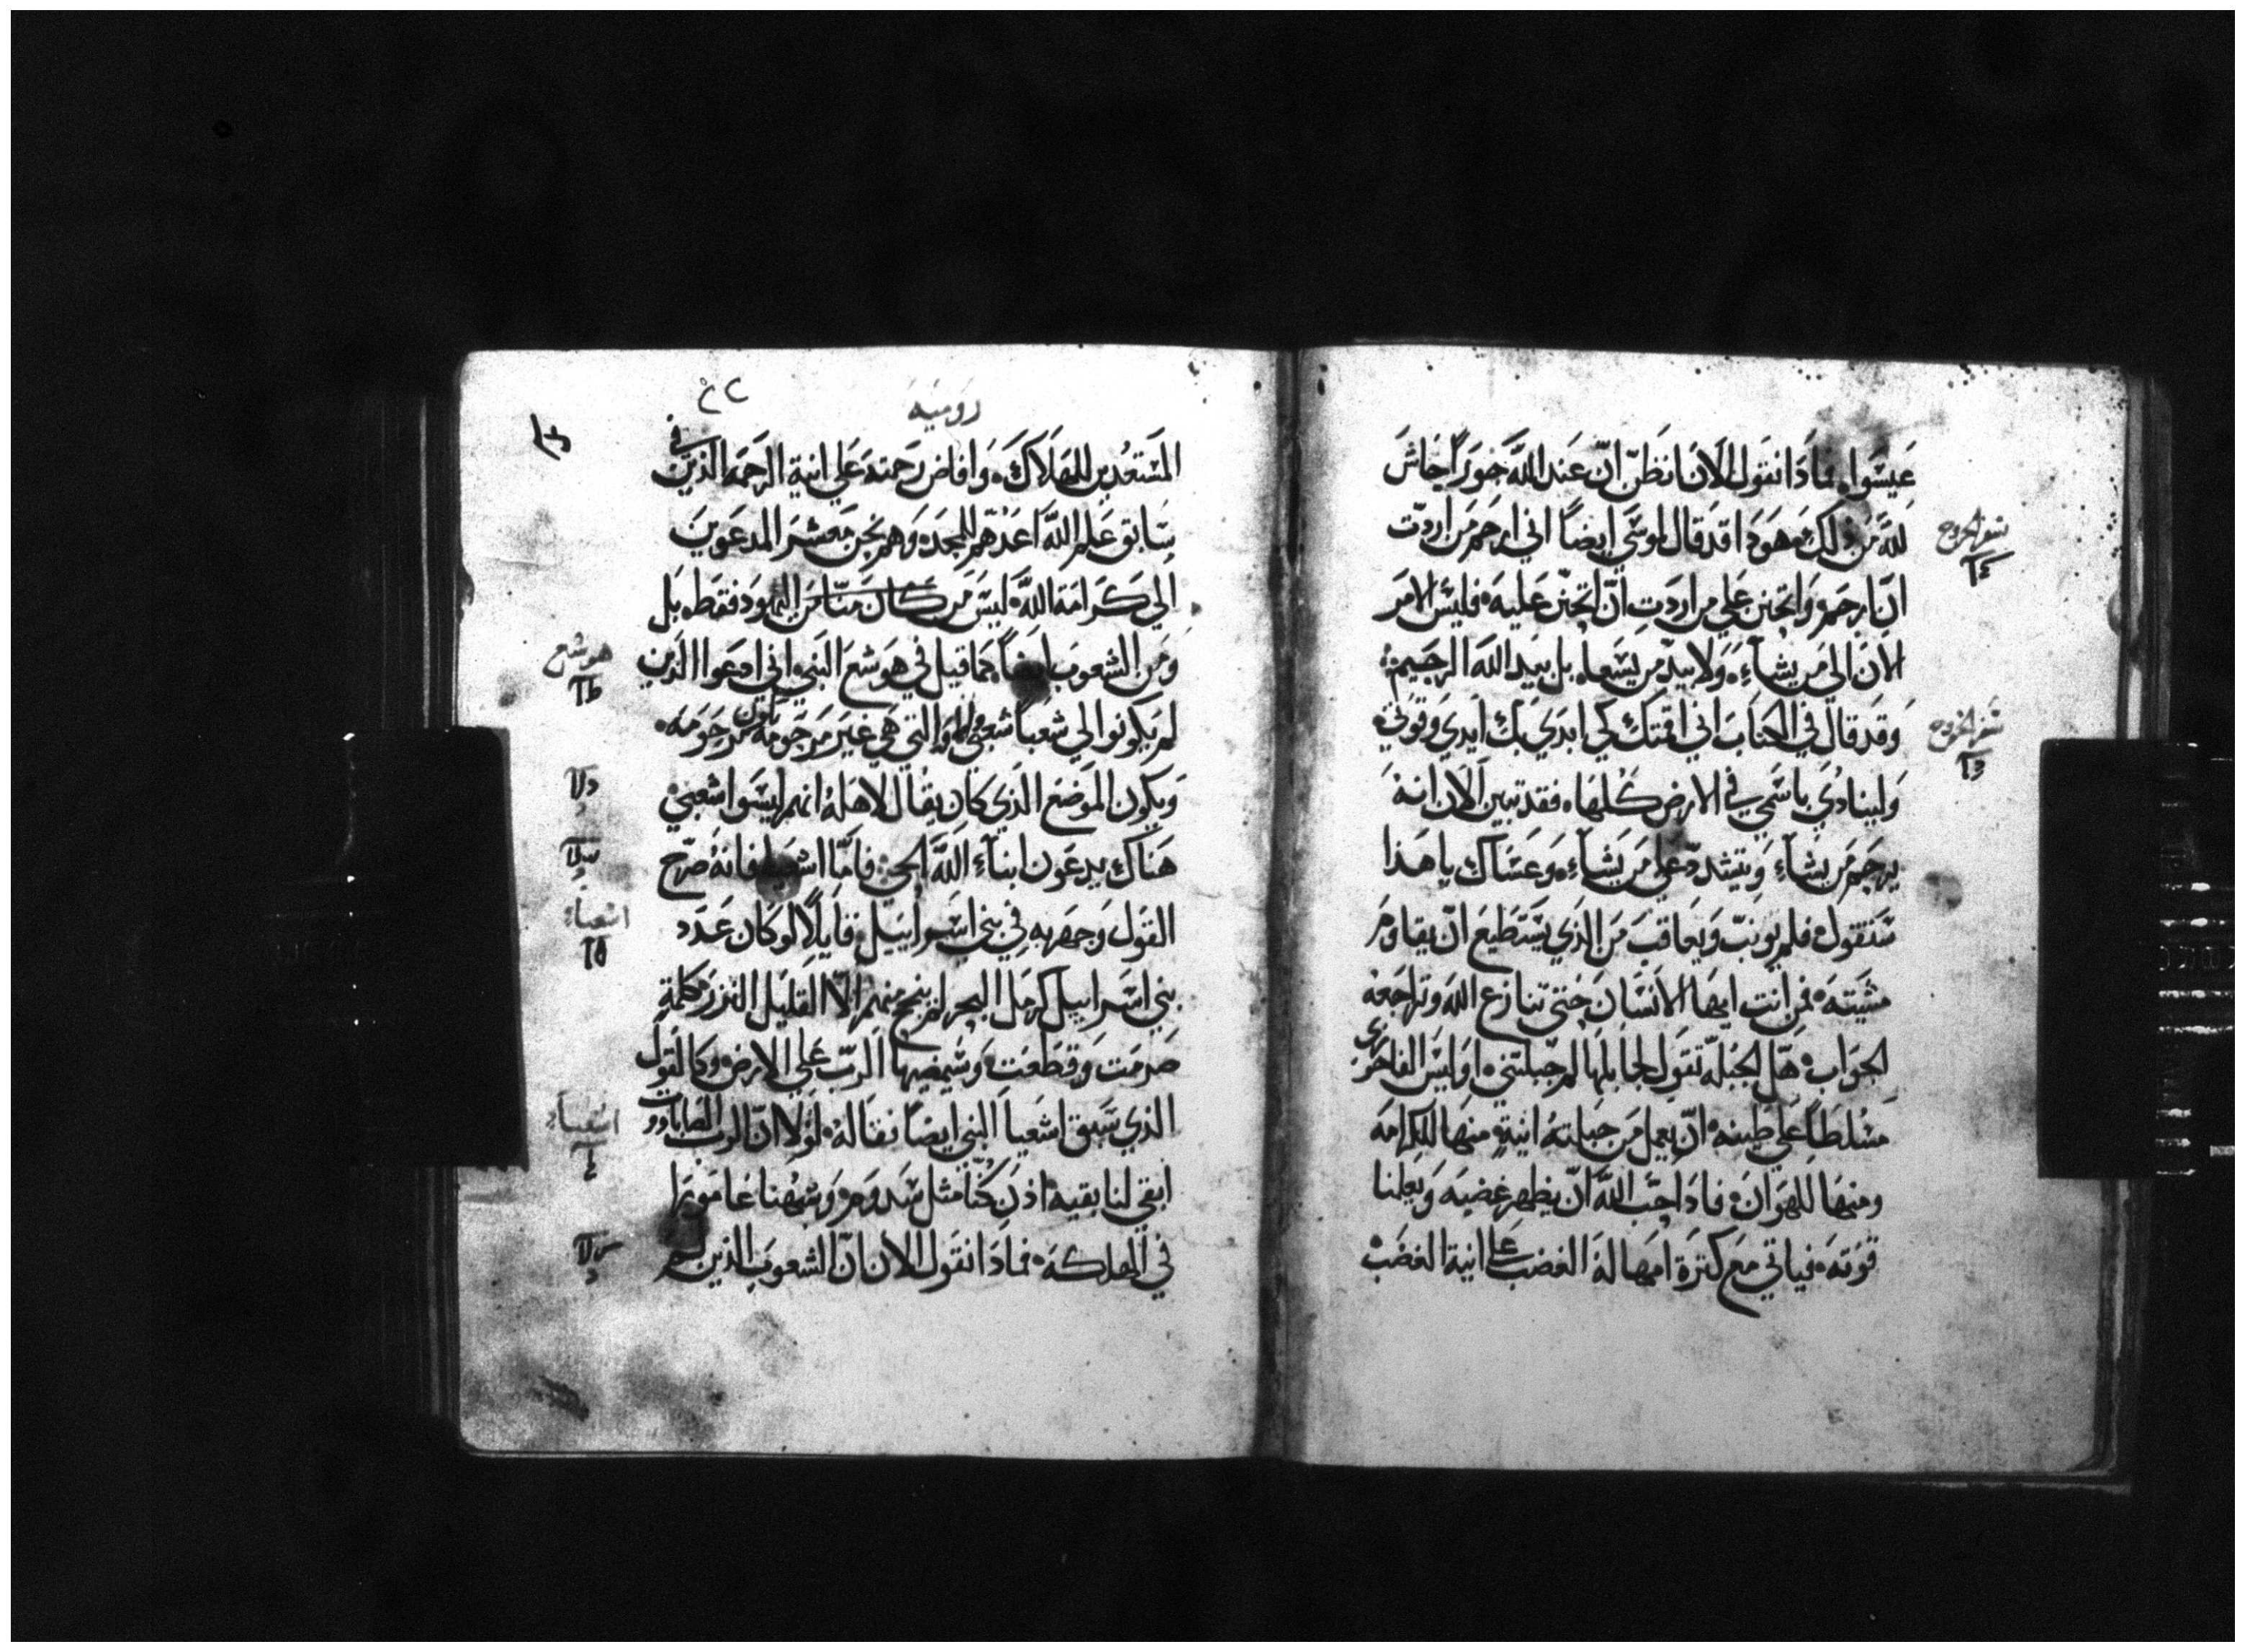 عيسوا فماذا نقول الان انظن ان عند الله جورا حاش
لله من ذلك هوذا قد قال لموسي ايضاً اني ارحم من اردت
سفر الخروج
ان ارحمه واتحنن علي من اردت ان اتحنن عليه فليس الامر
الان الي من يشآء ولا بيد من يسعا بل بيد الله الرحيم
وقد قال في الكتاب اني اقمتك كي ابدي بك ايدي وقوتي
سفر الخروج
ولينادي باسمي في الارض كلها فقد تبين الان انه
يرحم من يشآء ويتشدد علي من يشآء وعساك يا هذا
ستقول فلم يونب ويعاقب من الذي يستطيع ان يقاوم
مشيته فمن انت ايها الانسان حتي تنازع الله وتراجعه
الجواب هل الجبلة تقول لجابلها لم جبلتني اوليس الفاخوري
مسلطاً علي طينه ان يعمل من جبلته انية منها للكرامه
ومنها للهوان فاذا احب الله ان يظهر غضبه ويعلنا
قوته فياتي مع كثرة امهاله الغضب علي انية الغضب
رومية
المستعدين للهلاك وافاض رحمته علي انية الرحمه الذين في
سابق علم الله اعدهم للمجد وهم نحن معشر المدعوين
الي كرامة الله ليس من كان منا من اليهود فقط بل
ومن الشعوب ايضاً كما قيل في هوشع النبي اني ادعوا الذين
هوشع
لم يكونوا لي شعباً شعبي والتي هي غير مرحومة مرحومه
ويكون الموضع الذي كان يقال لاهله انهم ليسوا شعبي
هناك يدعون ابنآء الله الحي فاما اشعيا فانه صرح
القول وجهر به في بني اسراييل قايلاً لو كان عدد
اشعيآء
بني اسراييل كرمل البحر لم ينج منهم الا القليل النزر كلمة
صرمت وقطعت وسيمضيها الرب علي الارض وكالقول
الذي سبق اشعيا النبي ايضا فقاله لولا ان الرب الصاباووت
اشعيآء
ابقي لنا بقيه اذن كنا مثل سدوم وشبهنا غامورا
في الهلكه فماذا نقول الان ان الشعوب الذين لم